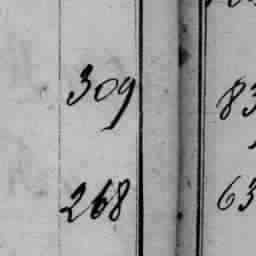 309
83
268
63